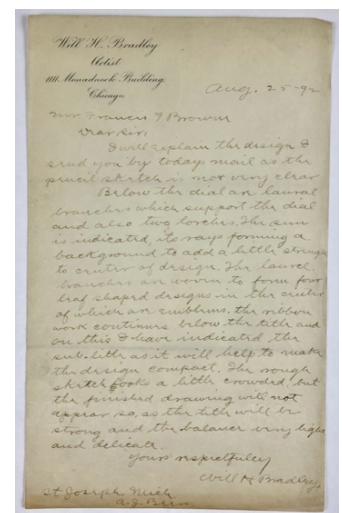 Will H. Bradley
Artist
1111 Monadnock Building
Chicago
Aug. 25-92
Mr. Francis F Browne
Dear Sir;
I will explain the design I
send you by todays mail as the
pencil sketch is not very clear
Below the dial are laural
branches which support the dial
and also two torches. The sun
is indicated, its rays forming a
background to add a little strength
to center of design. The laurel
branches are woven to form four
leaf shaped designs in the center
of which are emblems. the ribbon
work continues below the title and
on this I have indicated the
sub-title as it will help to make
the design compact. The rough
sketch looks a little crowded, but
the finished drawing will not
appear so, as the title will be
strong and the balance very light
and delicate.
Yours respectfully
Will H Bradley
St Joseph Mich